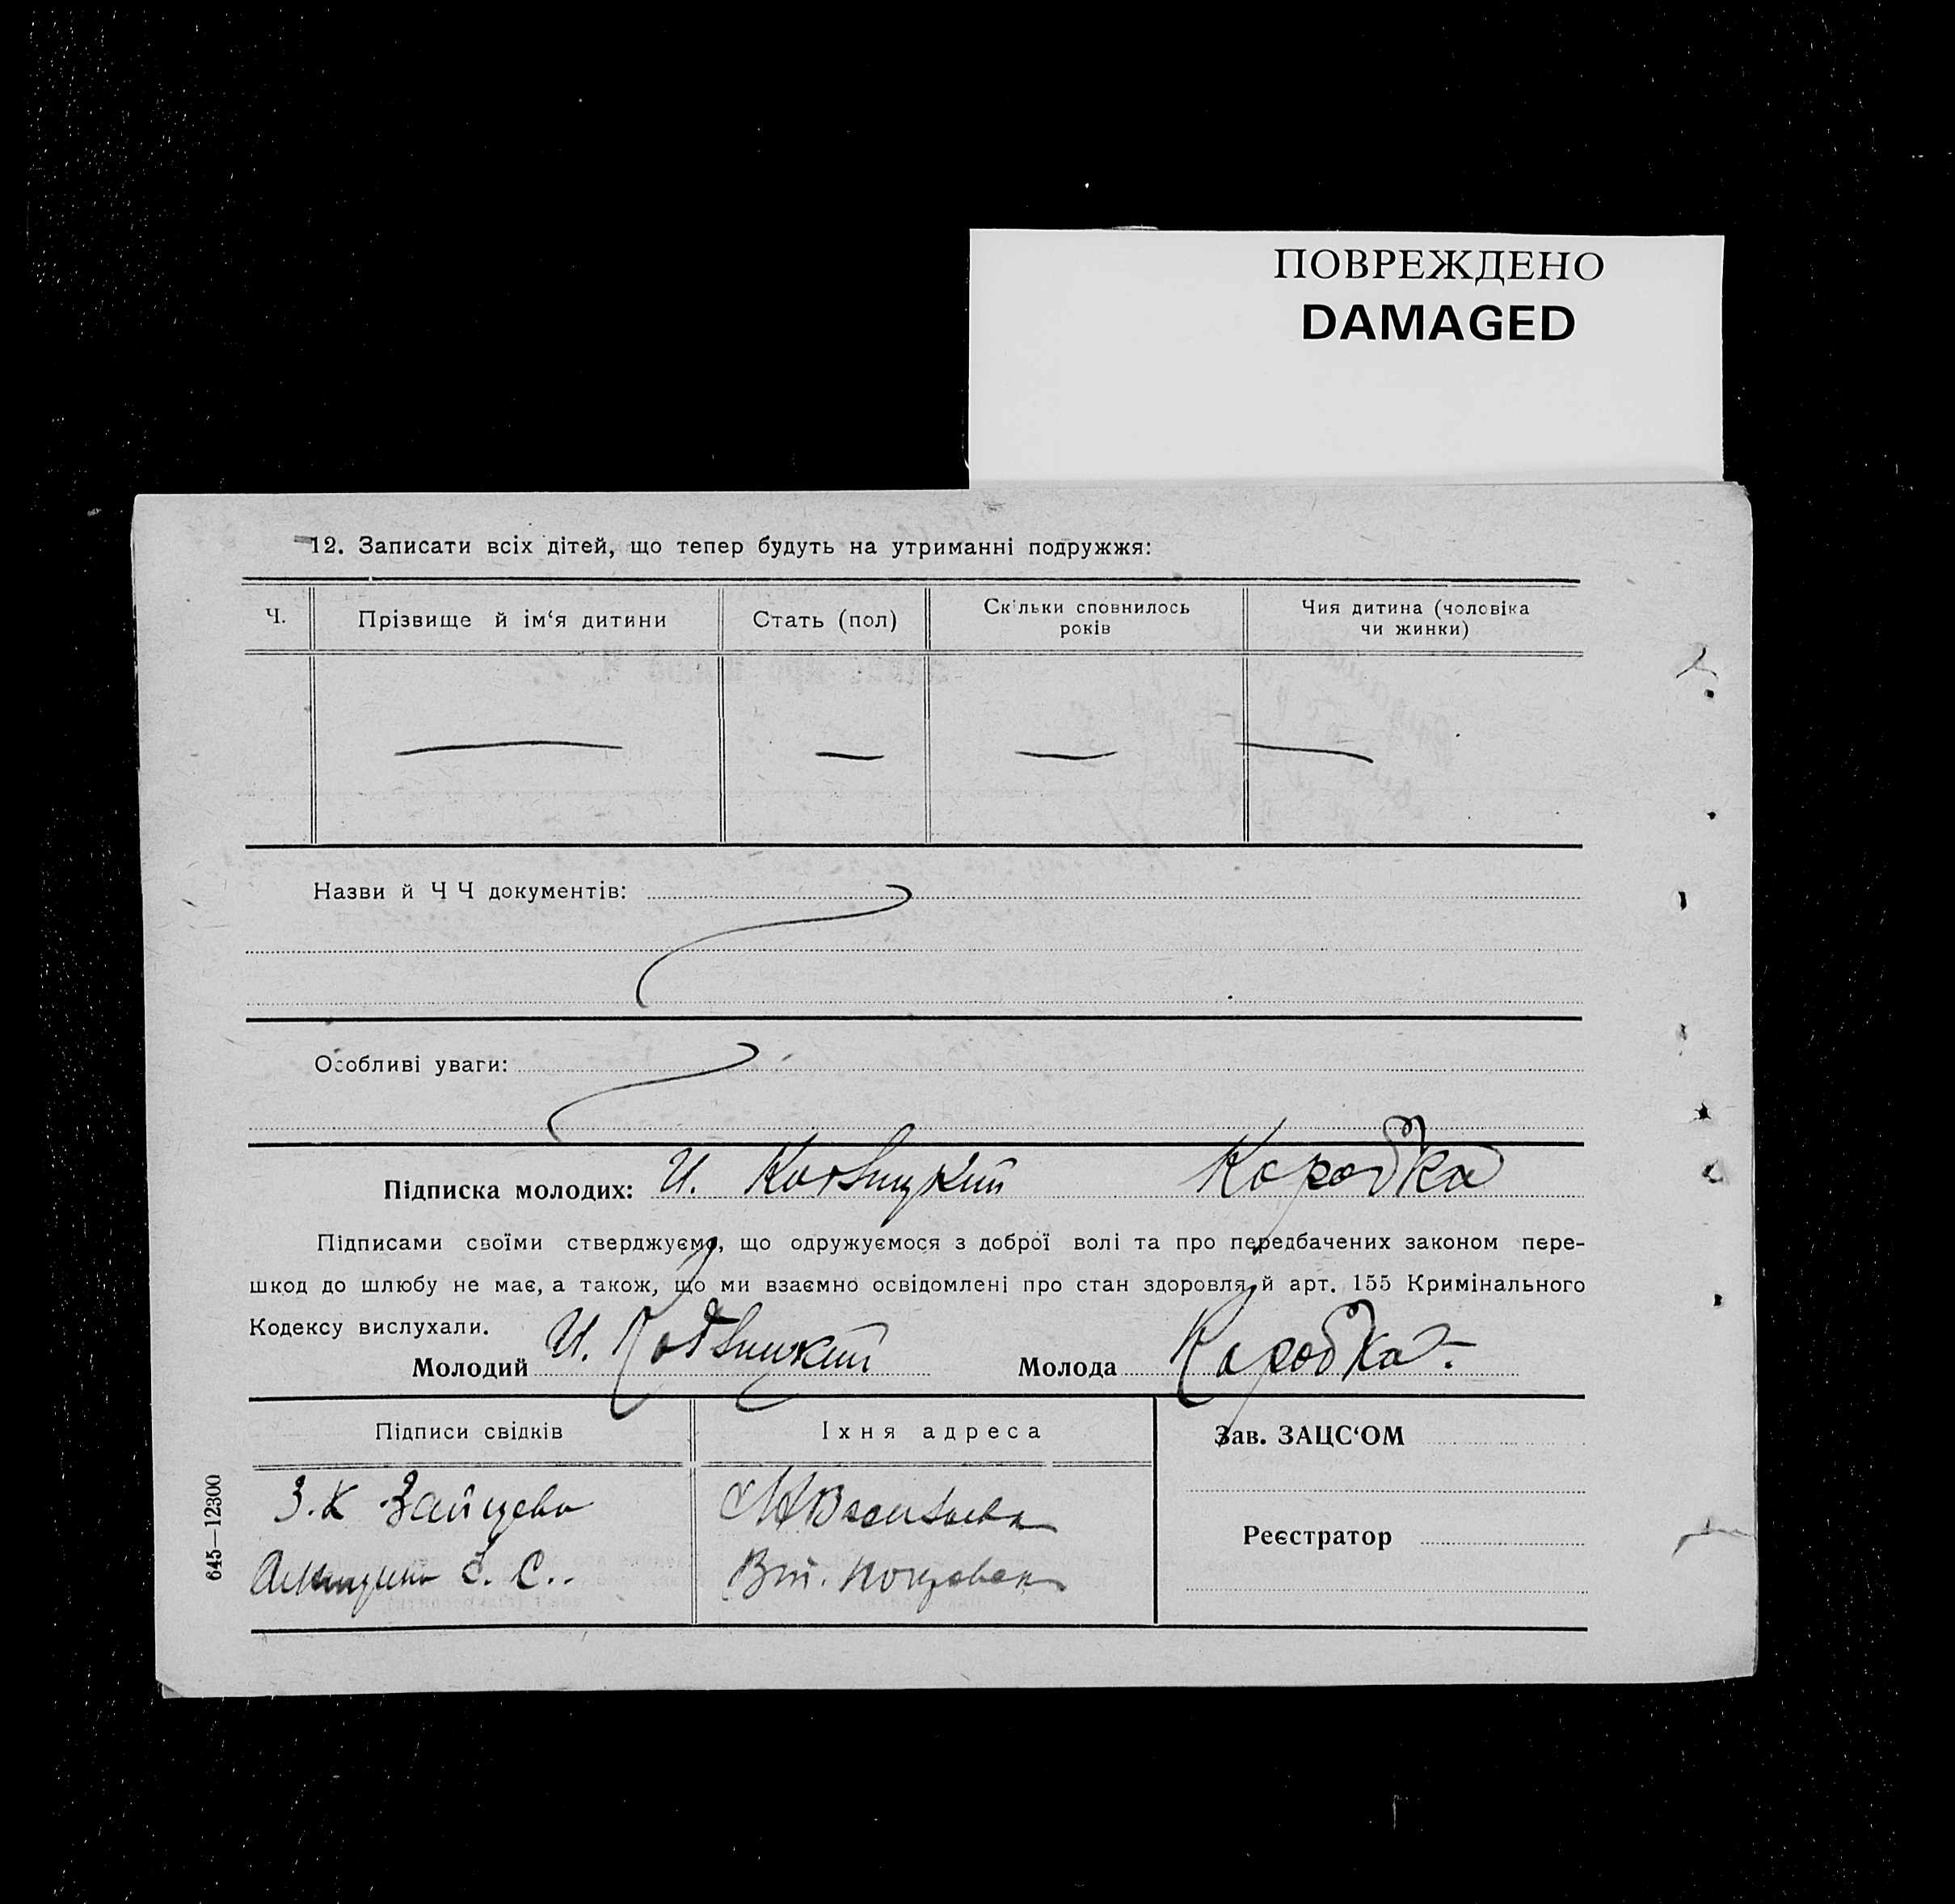 ПОВРЕЖДЕНО
DAMAGED
12. Записати всіх дітей, що тепер будуть на утриманні подружжя:
Ч.
Прізвище й ім‘я дитини
Стать (пол)
Скільки сповнилось
років
Чия дитина (чоловіка
чи жинки)
Назви й Ч Ч документів:
Особливі уваги:
Підписка молодих: И. Коробка
Підписами своїми стверджуємо, що одружуємося з доброї волі та про передбачених законом пере-
шкод до шлюбу не має, а також, що ми взаємно освідомлені про стан здоровля й арт. 155 Кримінального
Кодексу вислухали.
Молодий И. Молода Коробка
Підписи свідків
Їхня адреса
Зав. ЗАЦС‘ОМ
З. К Зайцева
Реєстратор
С. С.
645—12300